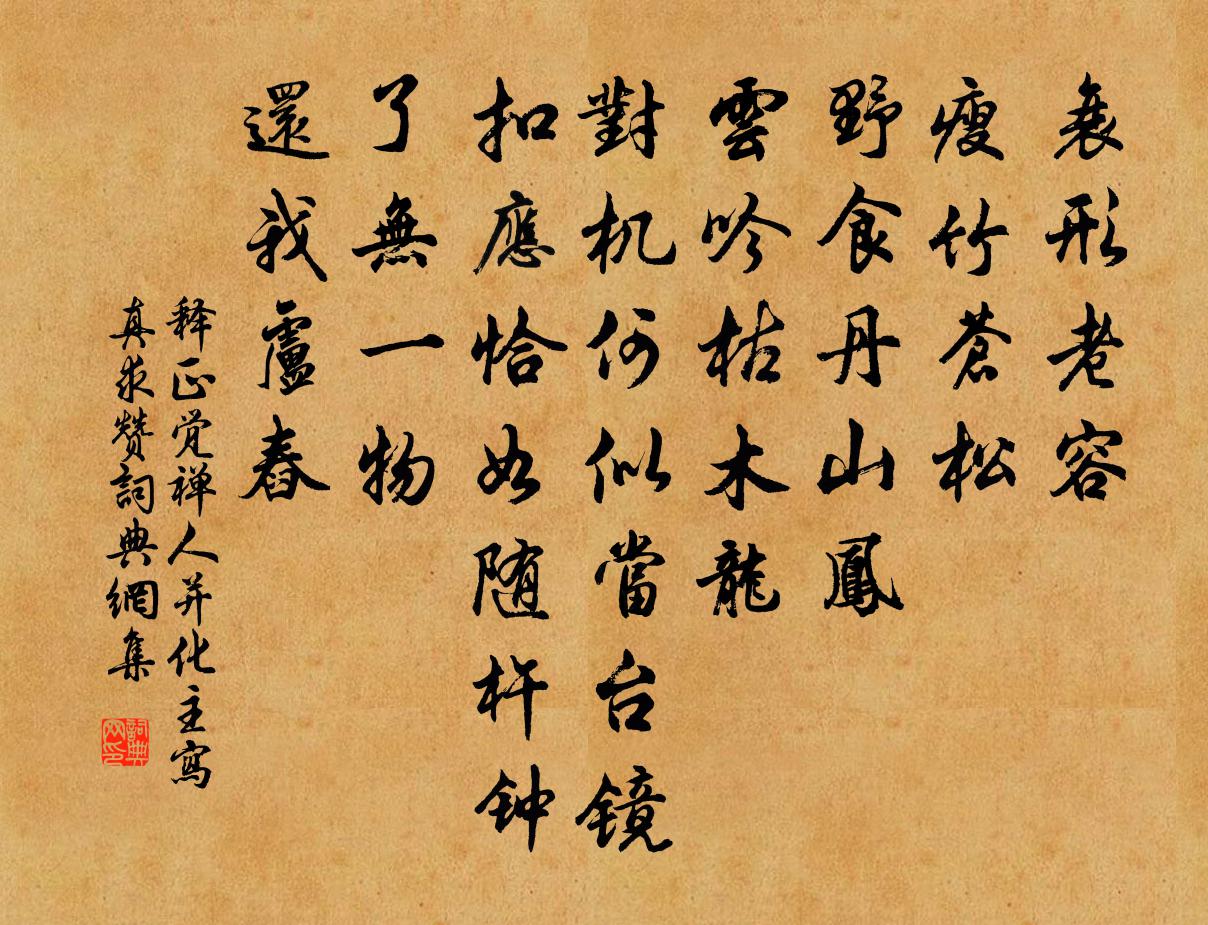 衰形老容
瘦竹蒼松
野食丹山鳳
雲吟枯木龍
對机何似當台鏡
扣應恰如随杵钟
了無一物
還我盧舂
释正觉禅人并化主寫
真求赞詞典網集
詞典
网印